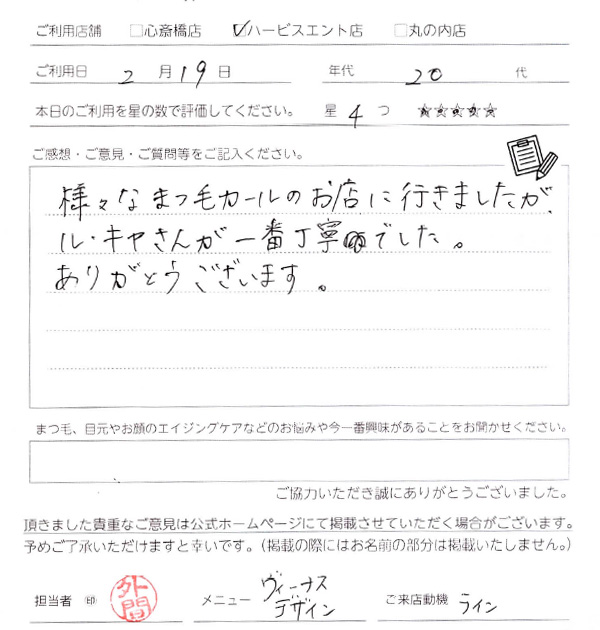 ご利用店舗 □心斎橋店 ☑ハービスエント店 □丸の内店
ご利用日 2 月 19 日 年代 20 代
本日のご利用を星の数で評価してください。 星 4 つ ☆☆☆☆☆
ご感想・ご意見・ご質問等をご記入ください。
様々なまつ毛カールのお店に行きましたが、
ル・キヤさんが一番丁寧でした。
ありがとうございます。
まつ毛、目元やお顔のエイジングケアなどのお悩みや今一番興味があることをお聞かせください。
ご協力いただき誠にありがとうございました。
頂きました貴重なご意見は公式ホームページにて掲載させていただく場合がございます。
予めご了承いただけますと幸いです。(掲載の際にはお名前の部分は掲載いたしません。)
担当者 ㊞ 外間 メニュー ヴィーナスデザイン ご来店動機 ライン